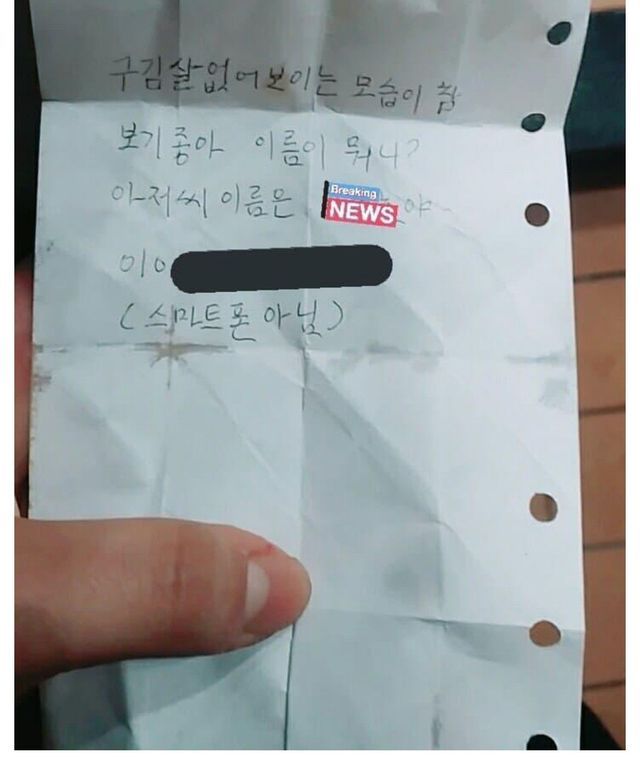 구김살없어보이는 모습이 참
보기좋아 이름이 뭐니?
아저씨 이름은 Breaking NEWS 야
010
(스마트폰 아님)